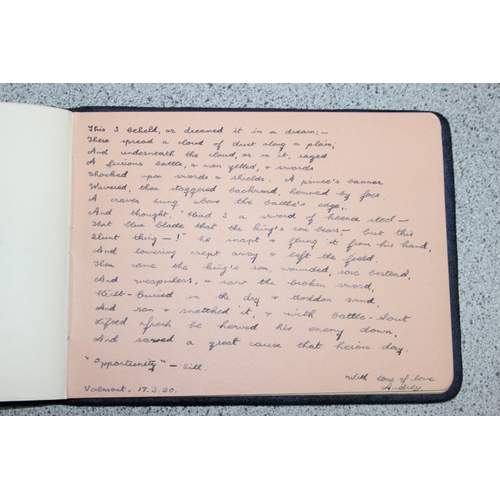 This I beheld, or dreamed it in a dream; -
There spread a cloud of dust along a plain;
And underneath the cloud, or in it, raged
A furious battle, & men yelled, & swords
Shocked upon swords & shields. A prince's banner
Wavered, then staggered backward, hemmed by foes.
A craven hung above the battle's edge,
And thought, "Had I a sword of keener steel -
That blue blade that the king's son bears - but this
Blunt thing - !" he snapt & flung it from his hand,
And lowering crept away & left the field.
Then came the king's son, wounded, sore bestead,
And weaponless, & saw the broken sword,
Hilt-buried in the dry & trodden sand,
And ran & snatched it, & with battle-shout
Lifted afresh he hewed his enemy down,
And saved a great cause that heroic day.
"Opportunity" - Sill.
With tons of love
Valmont. 17.3.30.
Audrey